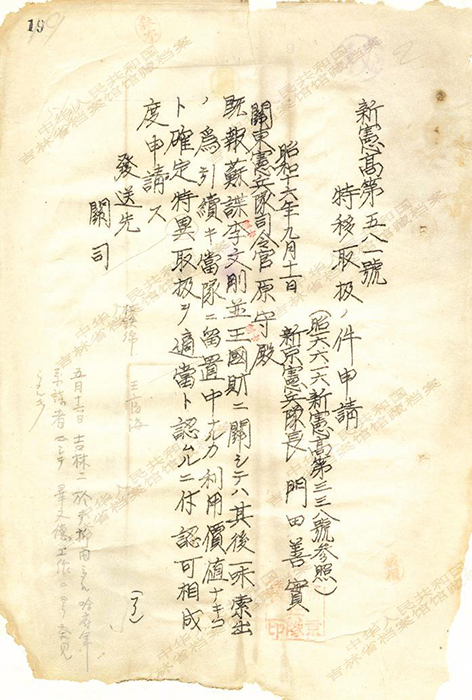 19
新憲高第五八二號
特移取扱ノ件申請
(昭一六、六、一六新憲高第三三八號参照)
昭和十六年九月十一日
新京憲兵隊長 門田善實
關東憲兵隊司令官原守殿
既報蘇諜李文剛並王國財ニ關シテハ其後一味索出
ノ爲引續キ當隊ニ留置中ナルカ利用價値ナキコ
ト確定特異取扱ヲ適當ト認ムルニ付認可相成
度申請ス
發送先
關司
(了)
中华人民共和国
吉林省档案馆馆藏档案